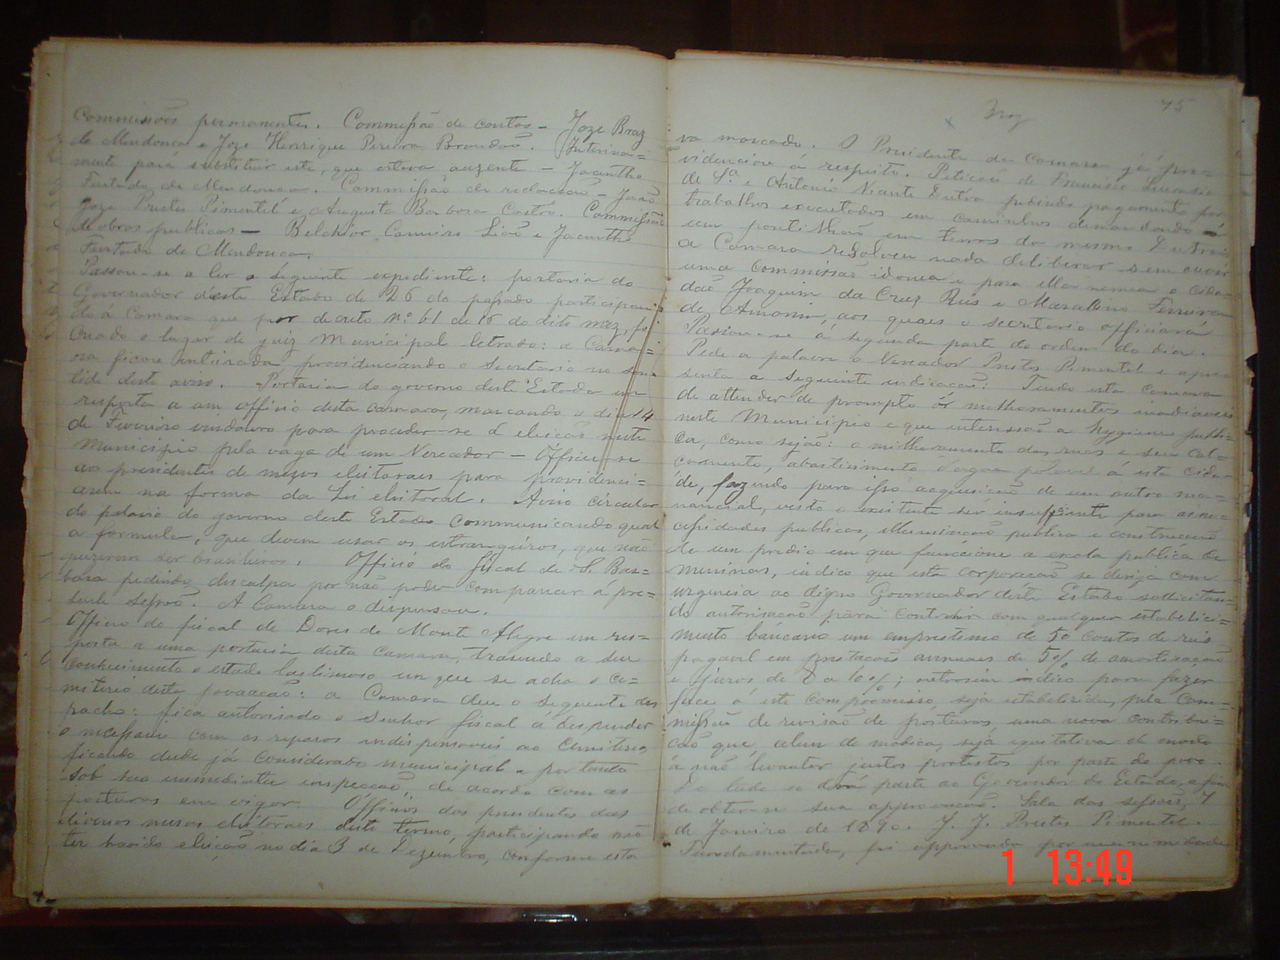 Commissões permanentes. Commissão de contas – Joze Braz
de Mendonça e Joze Henrique Pereira Brandão. Interina=
mente para substituir este, que estava auzente – Jacintho
Furtado de Mendonca. Commissão de redacção – João
Joze Prates Pimentel e Augusto Barbosa Castro. Commissão
de obras publicas – Belchior Carneiro Leão e Jacintho
Furtado de Mendonca.
Passou-se a ler o seguinte expediente: portaria do
Governador d'este Estado de 26 do passado participan
do á Camara que por decreto nº 61 de 16 do dito mez, foi
Creado o lugar de juiz Municipal letrado: a Cama=
ra ficou inteirada providenciando o Secretario no sen=
tido deste aviso. Portaria do governo deste Estado em
resposta a um officio desta camara, marcando o dia 14
de Fevereiro vindouro para proceder-se á eleição neste
Municipio pela vaga de um Vereador – Officie-se
aos presidentes de mezas eleitoraes para providenci=
arem na forma da Lei eleitoral. Aviso circular
do palacio do governo deste Estado communicando qual
a formula, que devem usar os estrangeiros, que não
quizerem ser brasileiros. Officio do fiscal de S. Bar=
bara pedindo desculpa por não poder comparecer a pre=
sente sessão. A Camara o dispensou.
Officio do fiscal de Dores do Monte Alegre em res=
posta a uma portaria desta Camara, trazendo a seu
conhecimento o estado lastimoso em que se acha o ce=
miterio desta povoação: a Camara deu o seguinte des
pacho: fica autorisado o Senhor fiscal a despender
o necessario com os reparos indispensaveis ao Cemiterio,
ficando desde já considerado municipal e portanto
sob sua immediata inspecção, de acordo com as
posturas em vigor. Officios dos presidentes das
diversas mezas eleitoraes deste termo, participando não
ter havido eleição no dia 3 de Dezembro, conforme esta
75
va marcado. O Presidente da Camara já pro=
videnciou á respeito. Petição de Francisco
de S.ª e Antonio Vicente Dutra pedindo pagamento por
trabalhos executados em caminhos demandando á
um pontilhão em terras do mesmo Dutra:
a Camara resolveu nada deliberar sem ouvir
uma commissão idonea e para ella nomea o cida
dão Joaquim da Cruz Reis e Marcellino Ferreira
de Amorim, aos quaes o secretario officiará
Passou-se á segunda parte da ordem do dia.
Pede a palavra o Vereador Prates Pimentel e apre
senta a seguinte indicação: Tendo esta camara
de attender de prompto os melhoramentos inadiaveis
neste Municipio e que interessão a hygiene publi=
ca, como sejão: o melhoramento das ruas e seu cal=
camento, abastecimento d'agoa potavel á esta Cida
de, fazendo para isso acquisição de um outro ma=
nancial, visto o existente ser insufficiente para as ne=
cessidades publicas, illuminação publica e construcção
de um predio em que funccione a escola publica de
meninas, indico que esta corporação se dirija com
urgencia ao digno Governador deste Estado sollicitan=
do autorisação para contrahir com qualquer estabeleci=
mento bancario um emprestimo de 50 contos de reis
pagavel em prestações annuaes de 5% de amortisação
e juros de 8 a 10%; outrosim indico para fazer
face á este compromisso, seja estabelecida, pela Com=
missão de revisão de posturas uma nova contribui=
ção que, alem de modica, seja equitativa de modo
á não levantar justos protestos por parte do povo.
De tudo se dará parte ao Governador do Estado, a fim
de obter-se sua approvação. Sala das sessões, 7
de Janeiro de 1890. J. J. Prates Pimentel.
foi approvada por unanimidade
1 13:49